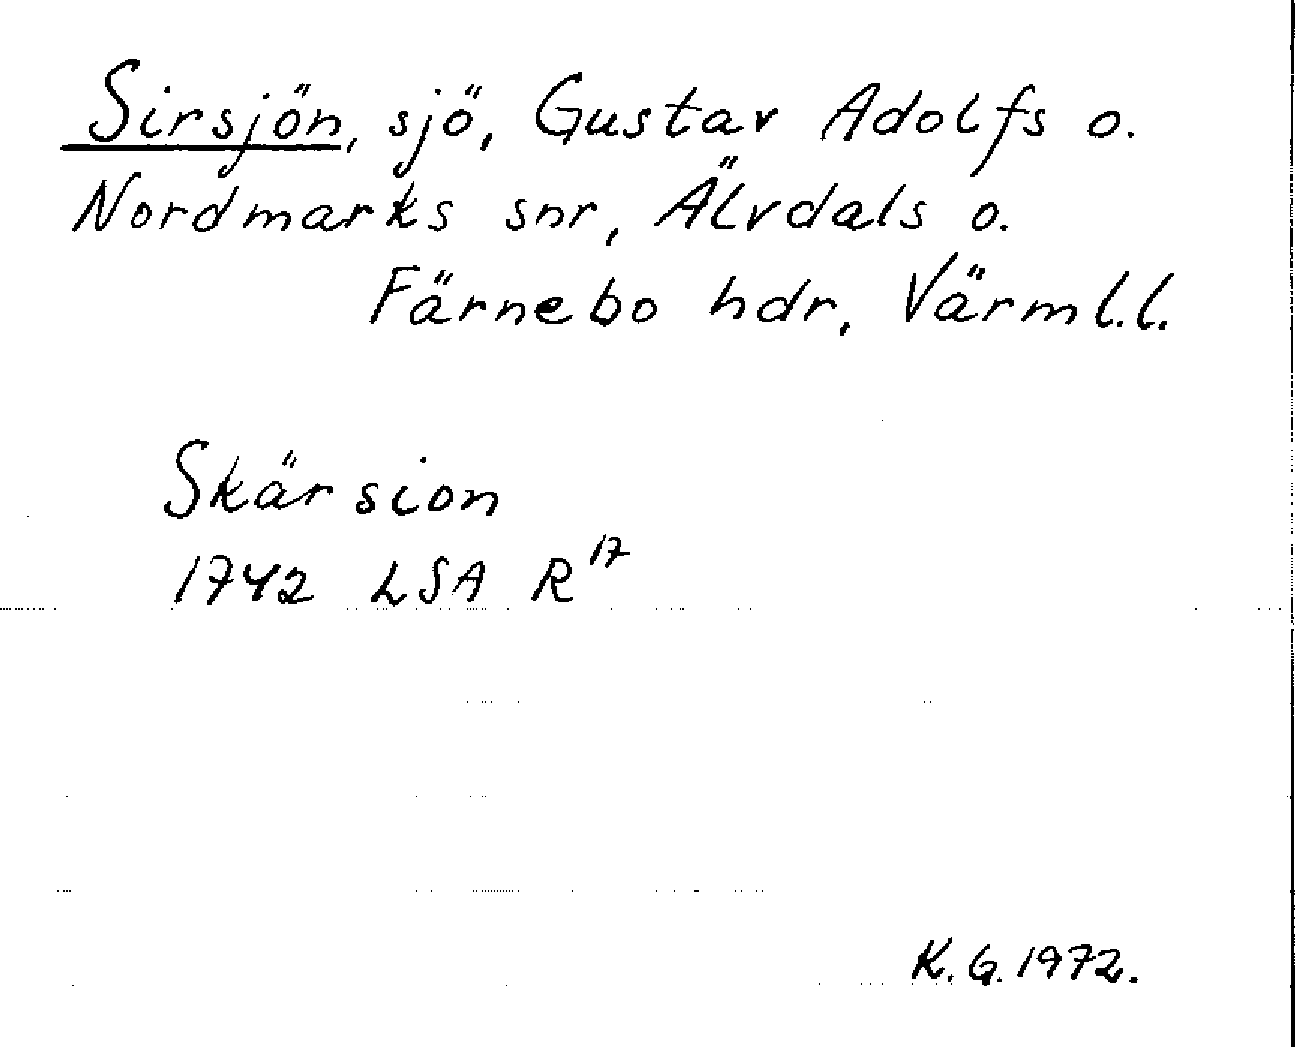 Sirsjön, sjö, Gustav Adolfs o.
Nordmarks snr, Älvdals o.
Färnebo hdr, Värml.l.
Skärsion
1742 LSA R17
K.G.1972.